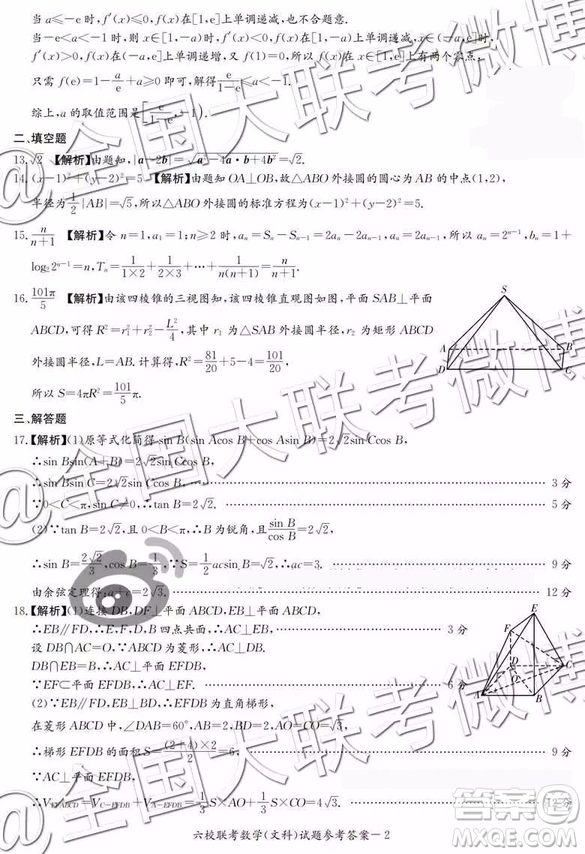 当a≤-e时，f′(x)≤0，f(x)在[1,e]上单调递减，也不合题意.
当-e<a<-1时，则x∈[1,-a)时，f′(x)<0，f(x)在[1,-a)上单调递减，x∈(-a,e]时，
f′(x)>0，f(x)在(-a,e]上单调递增，又f(1)=0，所以f(x)在x∈[1,e]上有两个零点，
只需f(e)=1-a/e+a≥0即可，解得e/(1-e)≤a<-1.
综上，a的取值范围是[e/(1-e),-1).
二、填空题
13.√2 【解析】由题知，|a-2b|=√(a²-4a·b+4b²)=√2.
14.(x-1)²+(y-2)²=5 【解析】由题知OA⊥OB，故△ABO外接圆的圆心为AB的中点(1,2)，
半径为1/2|AB|=√5，所以△ABO外接圆的标准方程为(x-1)²+(y-2)²=5.
15.n/(n+1) 【解析】令n=1，a₁=1；n≥2时，aₙ=Sₙ-Sₙ₋₁=2aₙ-2aₙ₋₁，所以aₙ=2ⁿ⁻¹，bₙ=1+
log₂2ⁿ⁻¹=n，Tₙ=1/(1×2)+1/(2×3)+…+1/(n(n+1))=n/(n+1).
16.101π/5 【解析】由该四棱锥的三视图知，该四棱锥直观图如图，平面SAB⊥平面
ABCD，可得R²=r₁²+r₂²-L²/4，其中r₁为△SAB外接圆半径，r₂为矩形ABCD
外接圆半径，L=AB. 计算得，R²=81/20+5-4=101/20，
所以S=4πR²=101/5π.
S
A
B
D
C
三、解答题
17.【解析】(1)原等式化简得sin B(sin Acos B+cos Asin B)=2√2sin Ccos B，
∴sin Bsin(A+B)=2√2sin Ccos B，
∴sin Bsin C=2√2sin Ccos B， 3分
∵0<C<π，sin C≠0，∴tan B=2√2. 5分
(2)∵tan B=2√2，且0<B<π，∴B为锐角，且sin B/cos B=2√2，
∴sin B=2√2/3，cos B=1/3，∵S=1/2acsin B=√2， 9分
由余弦定理得：a+c=2√3. 12分
18.【解析】(1)连接DB，DF⊥平面ABCD，EB⊥平面ABCD，
∴EB∥FD，∴E，F，D，B四点共面，∴AC⊥EB， 3分
设DB∩AC=O，∵ABCD为菱形，∴AC⊥DB.
DB∩EB=B，∴AC⊥平面EFDB，
∵EF⊂平面EFDB，∴AC⊥EF. 6分
(2)∵EB∥FD，EB⊥BD，∴EFDB为直角梯形，
在菱形ABCD中，∠DAB=60°，AB=2，BD=2，AO=CO=√3，
∴梯形EFDB的面积S=(2+4)×2/2=6， 9分
∵AC⊥平面EFDB，
∴V_EFABCD=V_C-EFDB+V_A-EFDB=1/3S×AO+1/3S×CO=4√3. 12分
E
F
D
C
O
A
B
六校联考数学(文科)试题参考答案-2
@全国大联考微博
@全国大联考微博
@全国大联考微博
答案圈
MXQE.COM